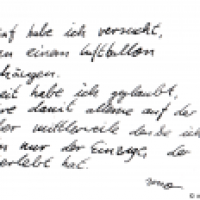 habe ich versucht,
einem Luftballon
hängen.
habe ich geglaubt,
damit alleine auf der
mittlerweile denke ich
nur der Einzige, der
erlebt hat.